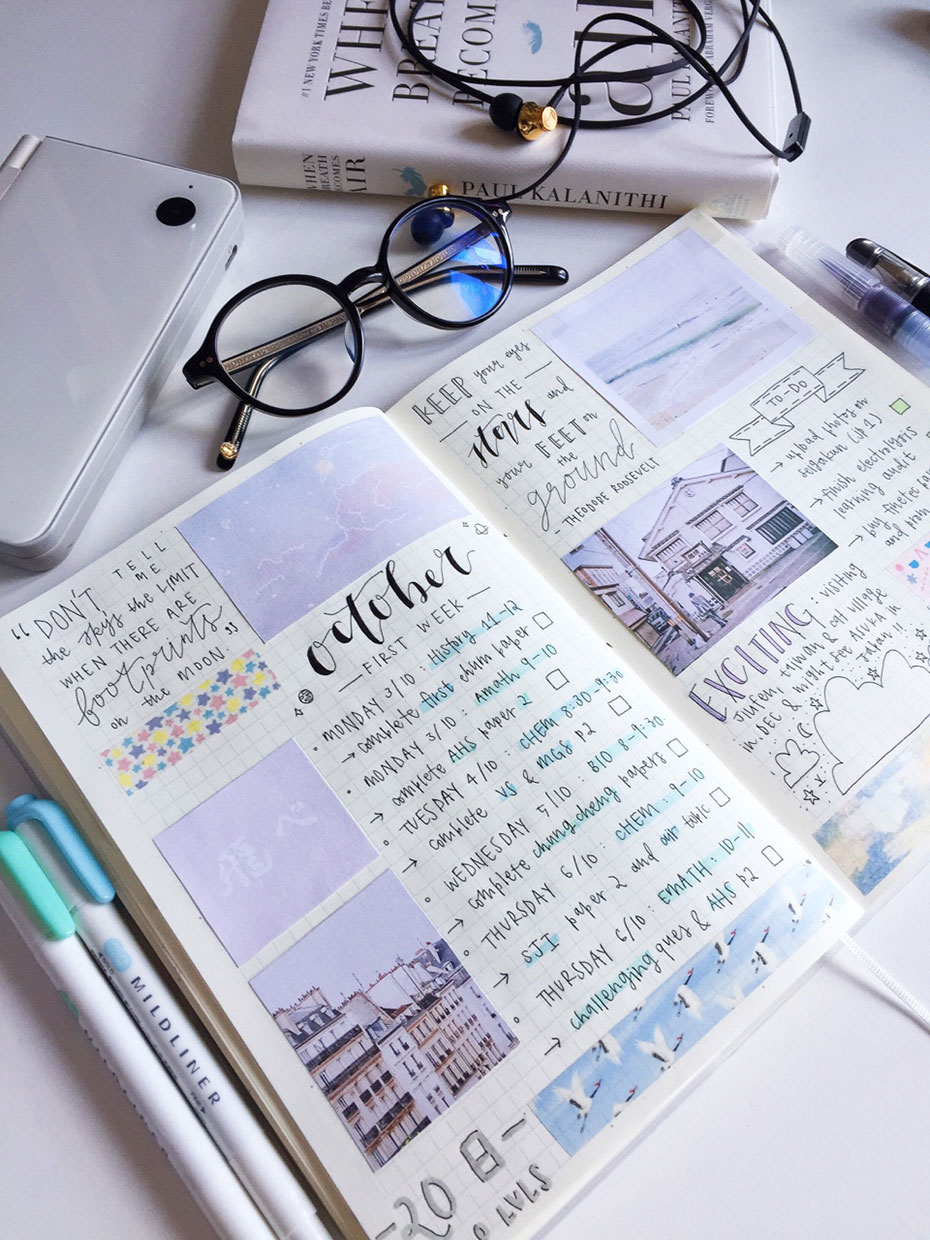 #1 NEW YORK TIMES BE
WHE
BREAT
BECOME
PAUL KALANITHI
ABRAHAM VERG
WHEN
BREATH
BECOMES
AIR
PAUL KALANITHI
“ DON'T
TELL
ME
the sky's the LIMIT
WHEN THERE ARE
footprints
on the MOON. ”
october
FIRST WEEK
MONDAY 3/10 : History 11-12
→ complete first chum paper
MONDAY 3/10 : Amath 9-10
complete AHS paper 2
TUESDAY 4/10 : CHEM 8:30-9:30
→ complete VS & MGS P2
WEDNESDAY 5/10 : BIO 8-9:30
→ complete chung cheng papers
THURSDAY 6/10 : CHEM : 9-10
→ SJI paper 2 and
THURSDAY 6/10 : EMATH : 10-11
→ challenging ques & AHS P2
20 日
MILDLINER
KEEP your eyes
ON THE
stars and
your FEET on
the
ground
THEODORE ROOSEVELT
TO-DO
→ upload photos on
→ finish electrolysis
learning audit
→ buy
and
EXCITING : visiting
Jiufen, Taiwan & cat village
in DEC & might see